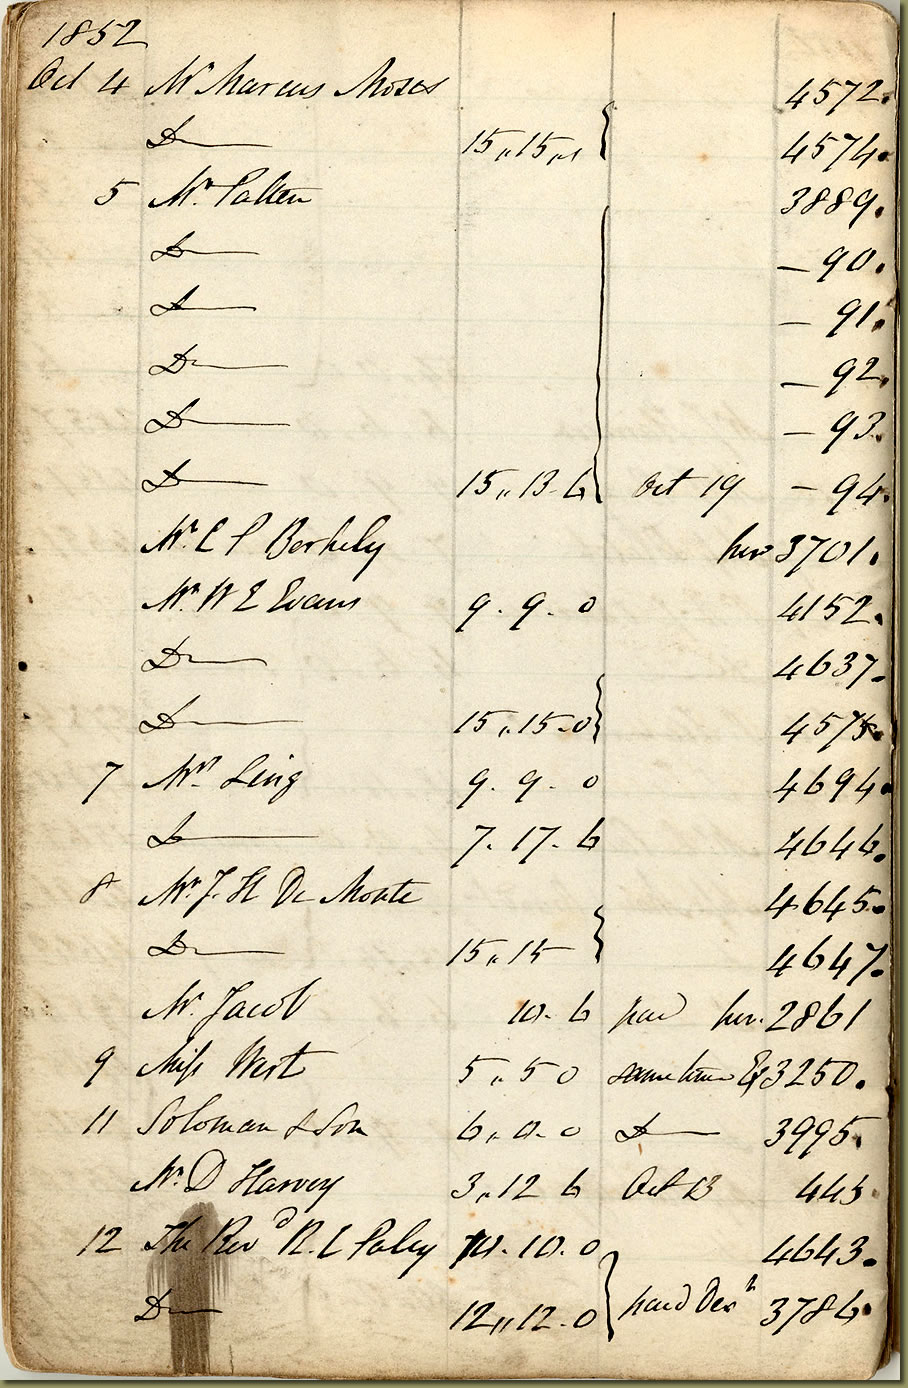 1852
Oct 4 Mr Marcus Moses 4572.
Do 15,,15,, 4574.
5 Mr Patten 3889.
Do — 90.
Do — 91.
Do — 92.
Do — 93.
Do 15,,13-6 Oct 19 — 94.
Mr C P Berkely 3701.
Mr W E Evans 9.9.0 4152.
Do 4637.
Do 15,,15-0 4575.
7 Mr Ling 9.9.0 4694.
Do 7.17.6 4646.
8 Mr J. H De Monte 4645.
Do 15,,15 4647.
Mr Jacob 10.6 2861
9 Miss West 5,,5 0 3250.
11 Soloman & Son 6,,0.0 Do 3995.
Mr D Harvey 3,,12 6 Oct 13 445
12 The Revd R. L Paley 10.10.0 4643.
Do 12,,12.0 paid 3786.